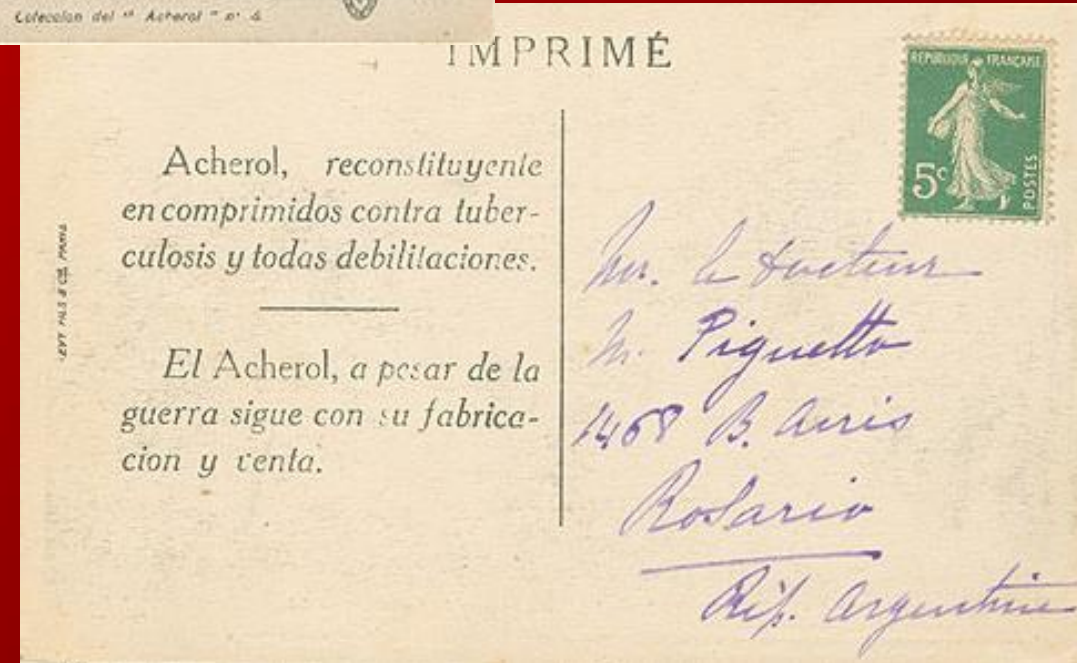 Coleccion del " Acherol " nº 4
IMPRIMÉ
REPUBLIQUE FRANÇAISE
5c
POSTES
Acherol, reconstituyente
en comprimidos contra tuber-
culosis y todas debilitaciones.
El Acherol, a pesar de la
guerra sigue con su fabrica-
cion y venta.
LEVY FILS & Cie PARIS
Mr. le docteur
M. Piguetto
1468 B. Aeris
Rosario
Rép. Argentine